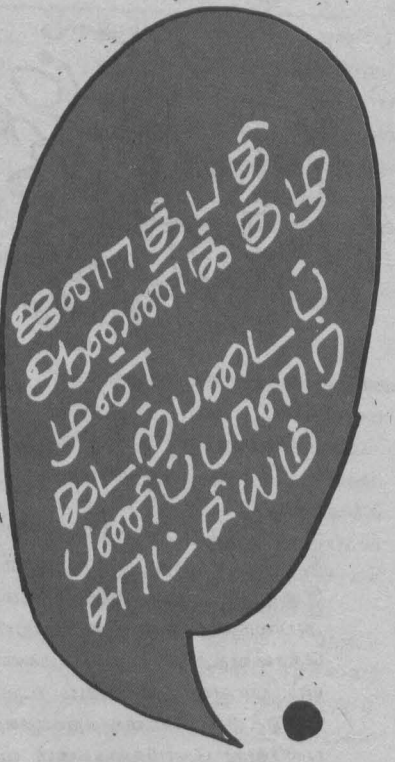 ஜனாத்பதி
ஆணைக்குழு
முன்
கடற்படைப்
பணிப்பாளர்
சாட்சியம்